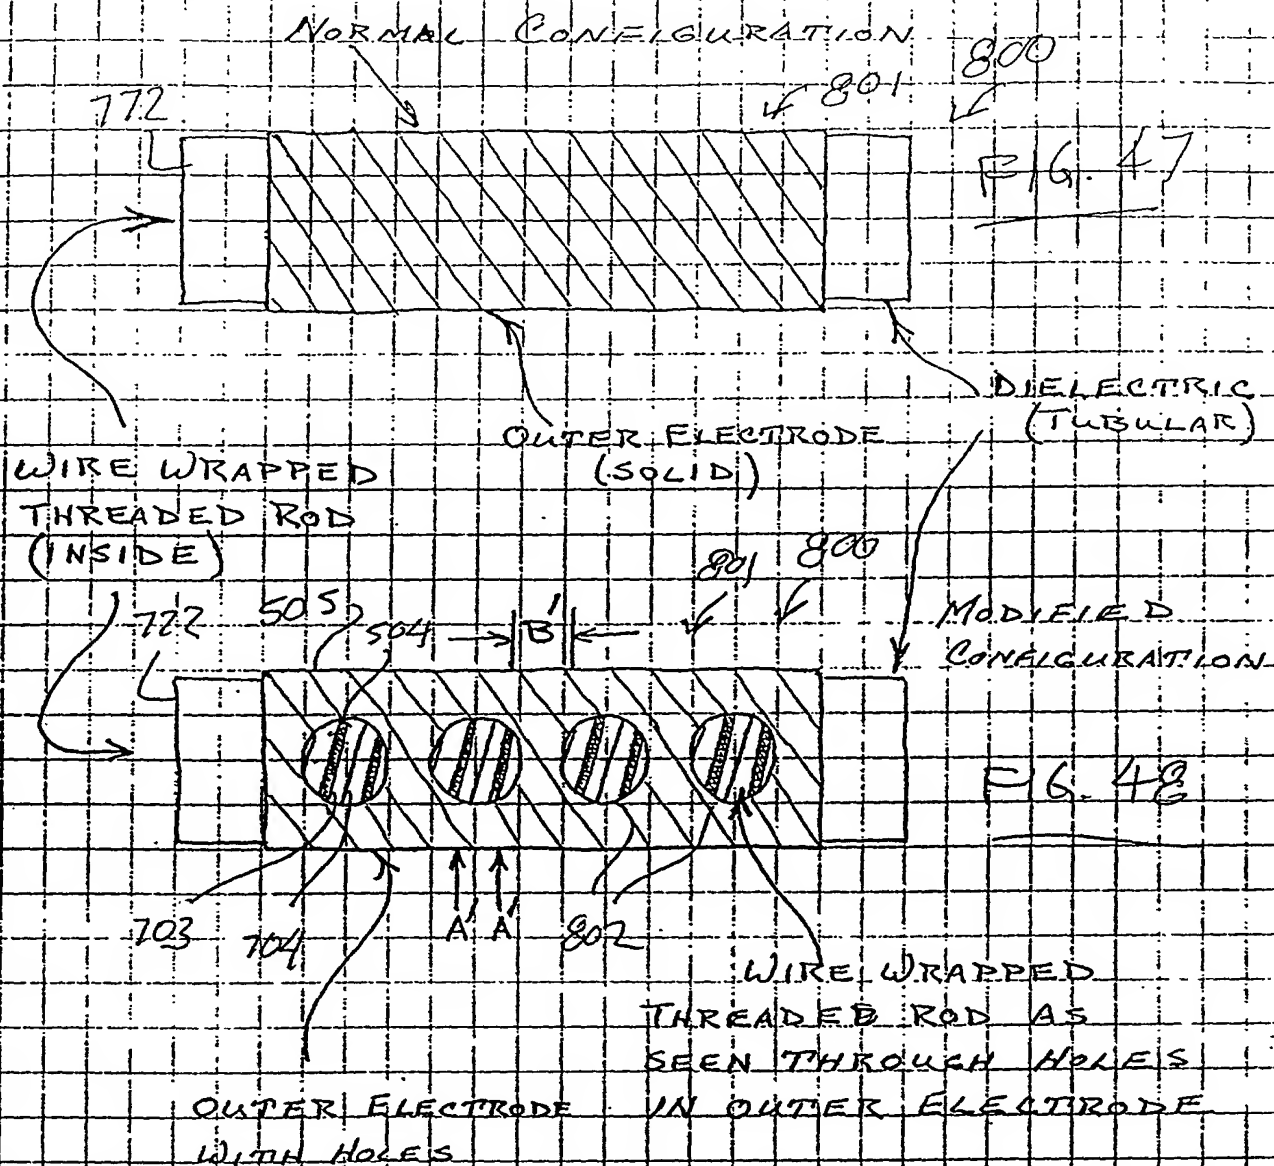 NORMAL CONFIGURATION
801
800
772
FIG. 47
DIELECTRIC
(TUBULAR)
OUTER ELECTRODE
(SOLID)
WIRE WRAPPED
THREADED ROD
(INSIDE)
801
800
722
505
504
B'
MODIFIED
CONFIGURATION
FIG. 48
703
704
A'
A'
802
WIRE WRAPPED
THREADED ROD AS
SEEN THROUGH HOLES
IN OUTER ELECTRODE
OUTER ELECTRODE
WITH HOLES